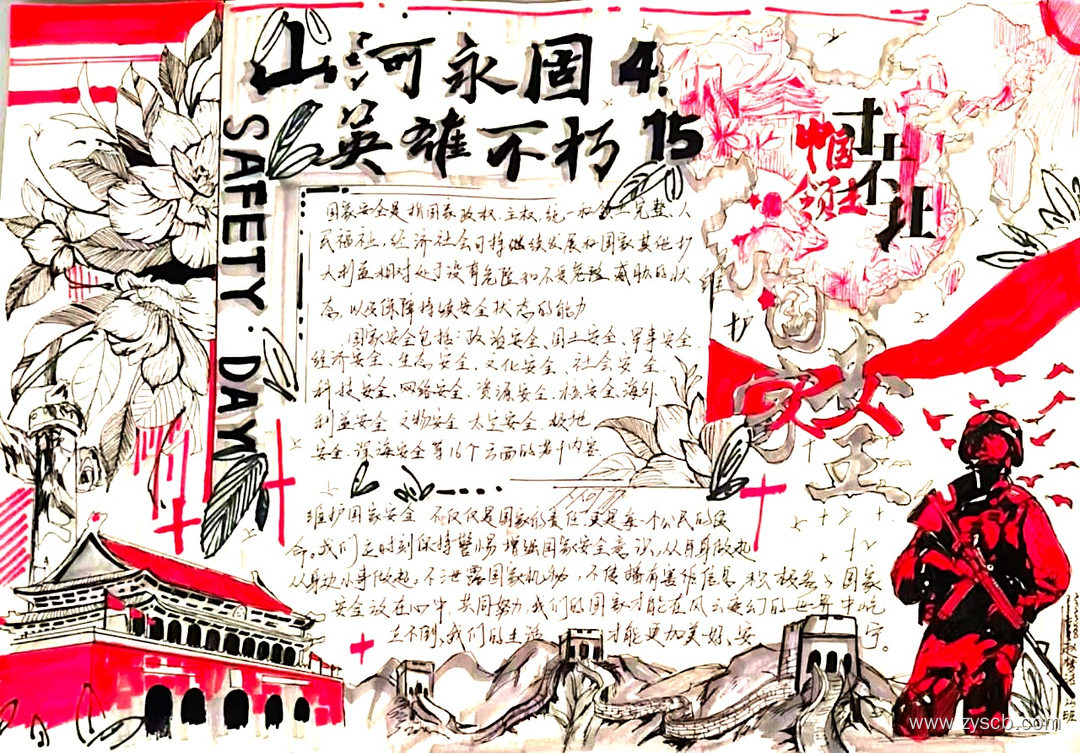 山河永固 4.
英雄不朽 15
SAFETY:DAY
寸土不让
中国领土
维护国家安全
国家安全是指国家政权、主权、统一和领土完整、人
民福祉、经济社会可持续发展和国家其他
大利益相对处于没有危险和不受 威胁的状
态,以及保障持续安全状态的能力
国家安全包括:政治安全、国土安全、军事安全
经济安全、生态安全、文化安全、社会安全、
科技安全、网络安全、资源安全、核安全、海外
利益安全 安全 太空安全 极地
安全、深海安全等16个方面的 内容
维护国家安全 不仅仅是国家的责任,更是每一个公民的使
命。我们 时刻保持警惕 增强国家安全意识,从自身做起
从身边小事做起,不泄露国家机 ,不传播有害信息 积极 国家
安全放在心中,共同努力,我们的国家才能在风云变幻的世界中屹
立不倒,我们的生活 才能更加美好、安 宁。
www.zyscb.com